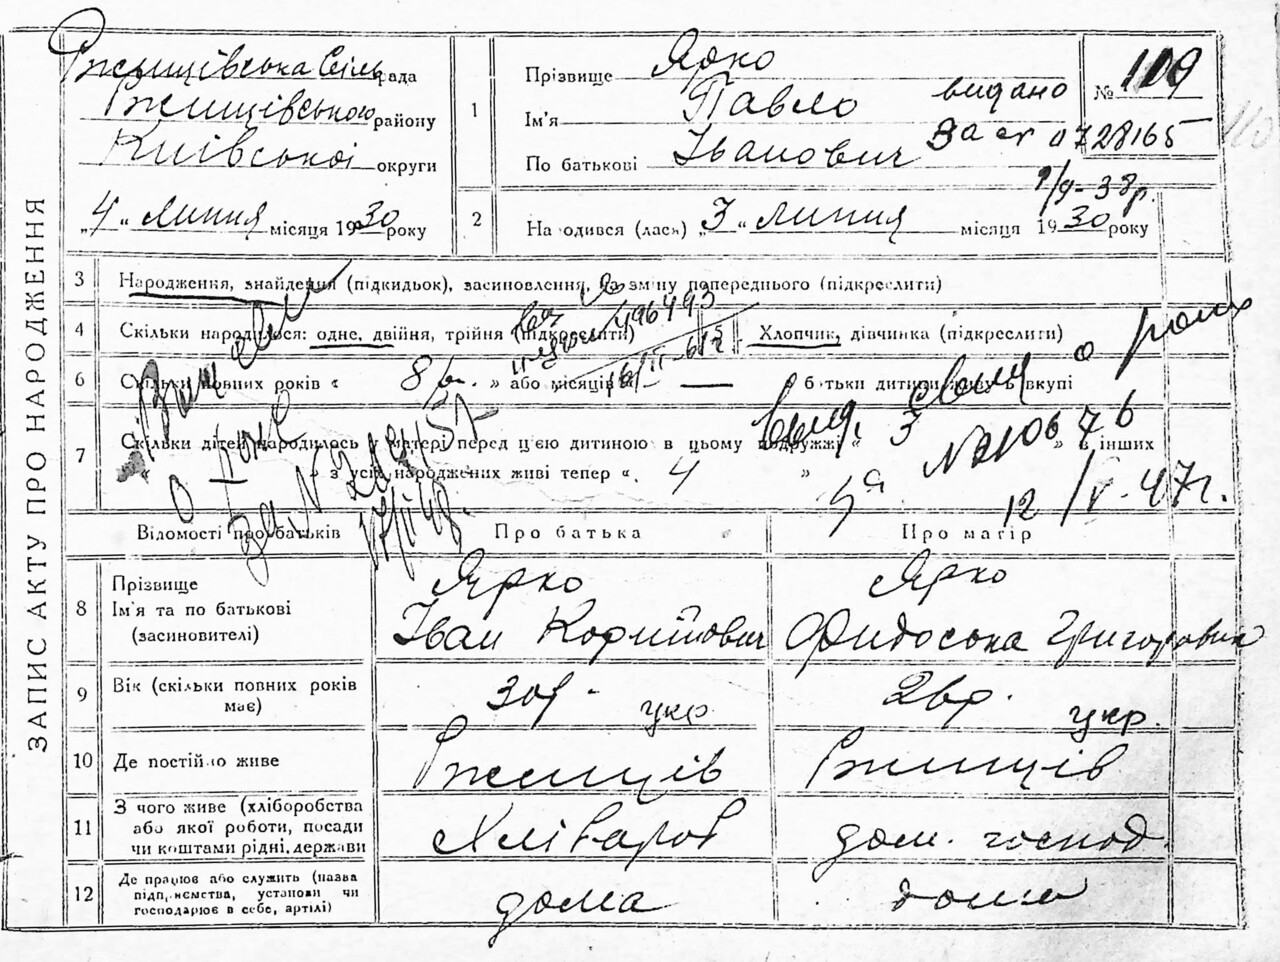 ЗАПИС АКТУ ПРО НАРОДЖЕННЯ
Ржищівська Сільрада
Ржищівського району
Київської округи
„4“ липня місяця 1930 року
1
Прізвище Ярко
Ім'я Павло
По батькові Іванович
видано
№ 119
0728165
1/9-38р.
110
2
На одився (лась) „3“ липня місяця 1930 року
3 Народження, знайдення (підкидьок), засиновлення, на зміну попереднього (підкреслити)
4 Скільки народилося: одне, двійня, трійня (підкреслити)
Хлопчик, дівчинка (підкреслити)
496493
6 Скільки повних років « 8 р. » або місяців — батьки дитини живуть вкупі
7 Скільки дітей народилось у матері перед цією дитиною в цьому подружжі « 3 » в інших
« » з усіх народжених живі тепер « 4 »
12/V-47г.
Відомості про батьків
Про батька
Про матір
8
Прізвище
Ім'я та по батькові
(засиновителі)
Ярко
Іван
Ярко
Григоровна
9
Вік (скільки повних років має)
30р. укр.
26р. укр.
10 Де постійно живе
Ржищів
Ржищів
11
З чого живе (хліборобства
або якої роботи, посади
чи коштами рідні, держави
Хлібароб
дом. господ.
12
Де працює або служить (назва
підприємства, установи чи
господарює в себе, артілі)
дома
дома